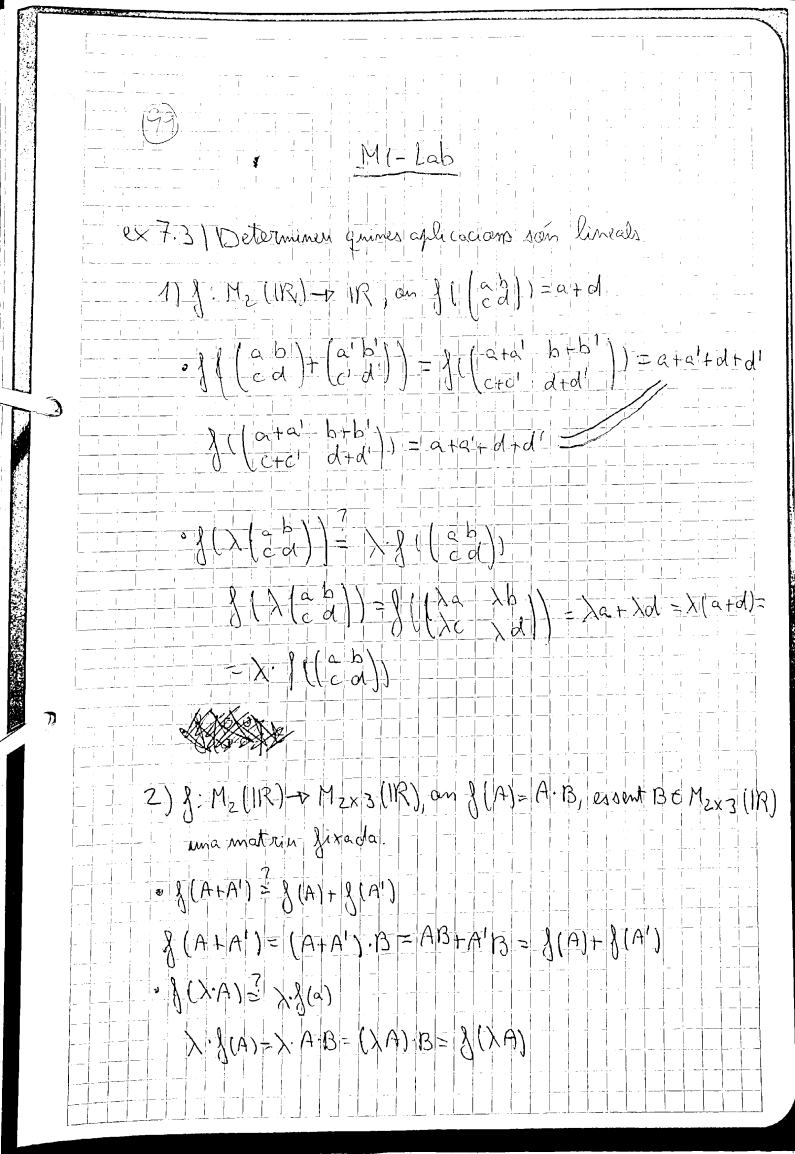 99
M1-Lab
ex 7.3 | Determineu quines aplicacions són lineals
1) f: M₂(ℝ) → ℝ, on f((a b / c d)) = a+d
• f((a b / c d) + (a' b' / c' d')) = f((a+a' b+b' / c+c' d+d')) = a+a'+d+d'
f((a+a' b+b' / c+c' d+d')) = a+a'+d+d' =
• f(λ(a b / c d)) ≟ λ·f((a b / c d))
f(λ(a b / c d)) = f((λa λb / λc λd)) = λa+λd = λ(a+d) =
= λ· f((a b / c d))
2) f: M₂(ℝ) → M₂ₓ₃(ℝ), on f(A) = A·B, essent B ∈ M₂ₓ₃(ℝ)
una matriu fixada.
• f(A+A') ≟ f(A) + f(A')
f(A+A') = (A+A')·B = AB+A'B = f(A) + f(A')
• f(λ·A) ≟ λ·f(a)
λ·f(A) = λ·A·B = (λA)·B = f(λA)